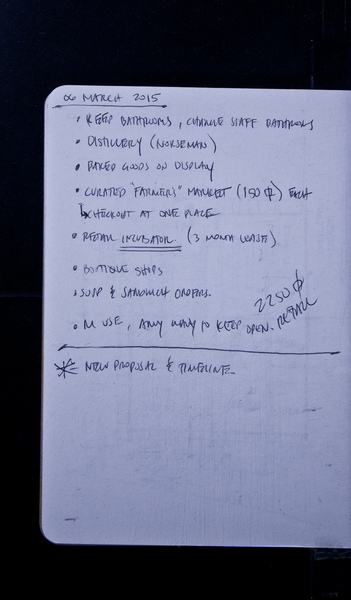 06 MARCH 2015
• KEEP BATHROOMS, CHANGE STAFF BATHROOMS
• DISTILLERY (NORSEMAN)
• BAKED GOODS ON DISPLAY
• CURATED "FARMERS" MARKET (150 ⌽) EACH
↳ CHECKOUT AT ONE PLACE
• RETAIL INCUBATOR. (3 MONTH LEASE)
• BOUTIQUE SHOPS
• SOUP & SANDWICH ORDERS.
• M USE, ANY WAY TO KEEP OPEN.
2250 ⌽
RETAIL
* NEW PROPOSAL & TIMELINE